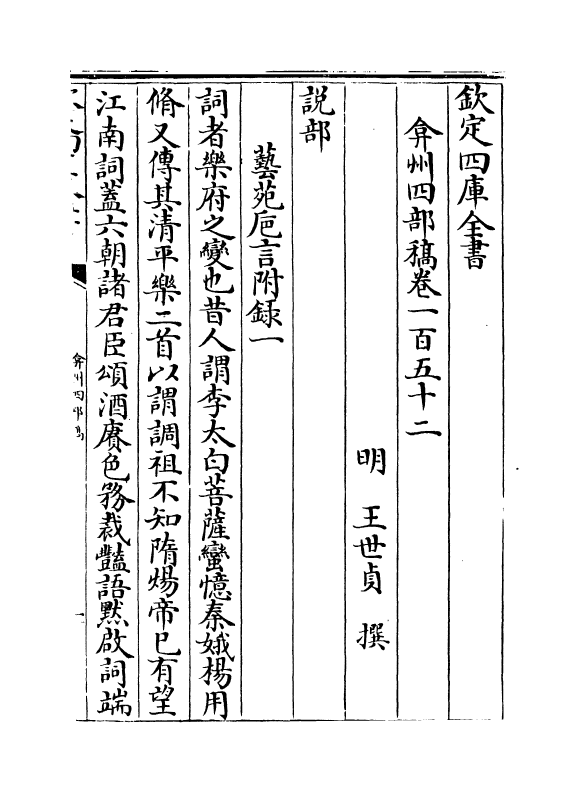 欽定四庫全書
弇州四部稿卷一百五十二
明 王世貞 撰
説部
藝苑巵言附録一
詞者樂府之變也昔人謂李太白菩薩蠻憶秦娥楊用
脩又傳其清平樂二首以謂調祖不知隋煬帝已有望
江南詞蓋六朝諸君臣頌酒賡色務裁豔語黙啟詞端
弇州四部稿
一